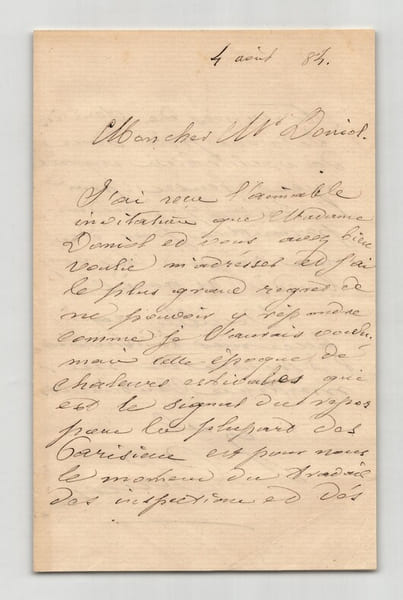 4 août 84.
Mon cher Mr Doniol.
J'ai reçu l'aimable
invitation que Madame
Doniol et vous avez bien
voulu m'adresser et j'ai
le plus grand regret de
ne pouvoir y répondre
comme je l'aurais voulu,
mais cette époque de
chaleurs estivales qui
est le signal du repos
pour la plupart des
Parisiens est pour nous
le moment du travail
des inspections et dès